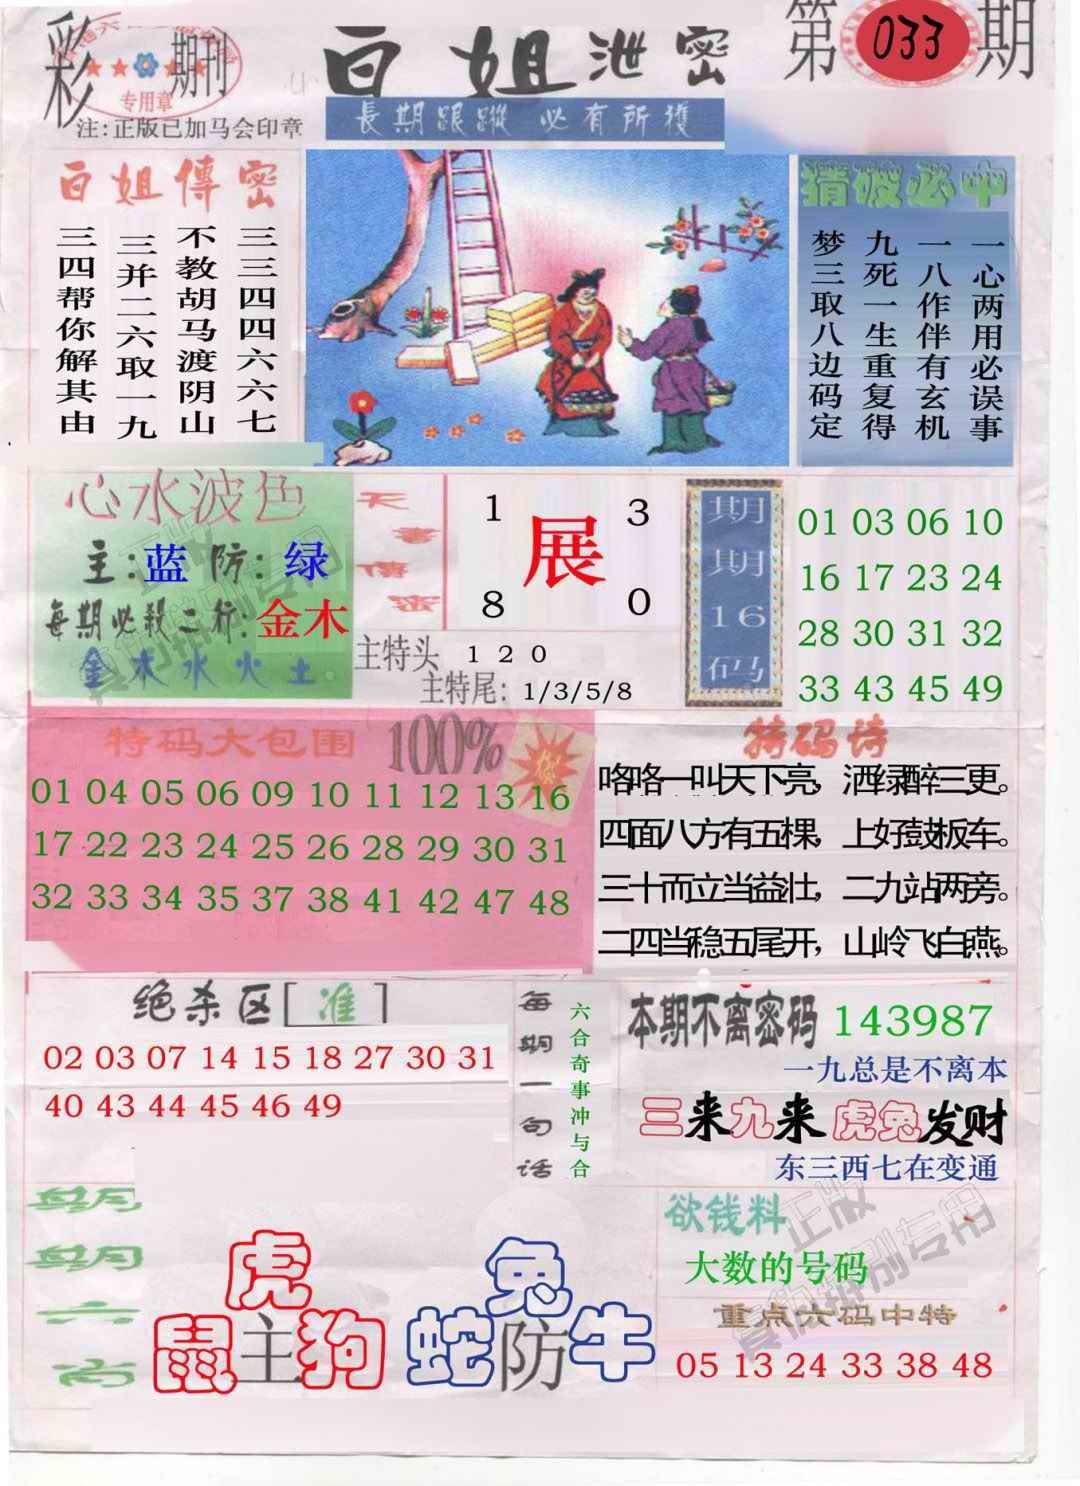 彩 期刊
专用章
注:正版已加马会印章
白姐泄密
第 033 期
長期跟蹤 必有所獲
白姐傳密
三三四四六六七
不教胡马渡阴山
三并二六取一九
三四帮你解其由
猜破必中
一心两用必误事
一八作伴有玄机
九死一生重复得
梦三取八边码定
心水波色
主:蓝 防:绿
每期必殺二行:金木
金木水火土
天書傳密
1 3
展
8 0
主特头 1 2 0
主特尾: 1/3/5/8
期期16码
01 03 06 10
16 17 23 24
28 30 31 32
33 43 45 49
特码大包围 100%
01 04 05 06 09 10 11 12 13 16
17 22 23 24 25 26 28 29 30 31
32 33 34 35 37 38 41 42 47 48
特码诗
咯咯一叫天下亮，洒绿醉三更。
四面八方有五棵，上好鼓板车。
三十而立当益壮，二九站两旁。
二四当稳五尾开，山岭飞白燕。
绝杀区[准]
02 03 07 14 15 18 27 30 31
40 43 44 45 46 49
每期一句话
六合奇事冲与合
本期不离密码 143987
一九总是不离本
三来九来 虎兔发财
东三西七在变通
六肖
虎
鼠主狗
兔
蛇防牛
欲钱料
大数的号码
重点六码中特
05 13 24 33 38 48